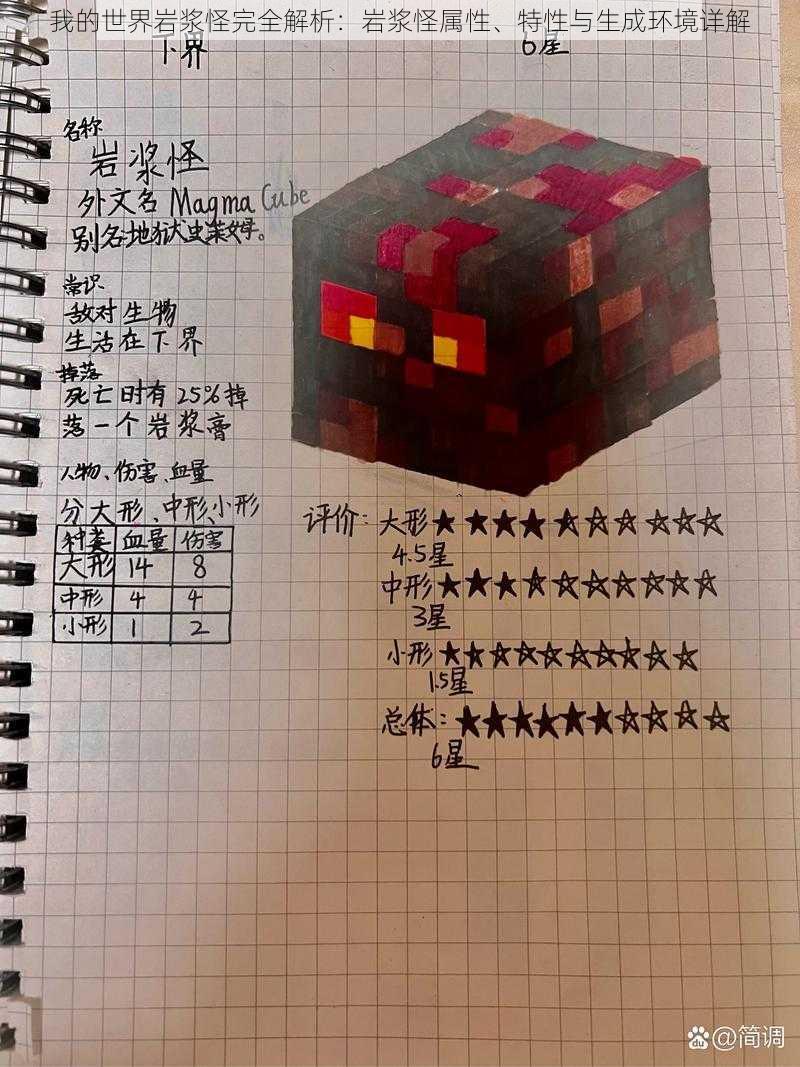 我的世界岩浆怪完全解析：岩浆怪属性、特性与生成环境详解
下界
6星
名称
岩浆怪
外文名 Magma Cube
别名地狱史莱姆。
常识
敌对生物
生活在下界
掉落
死亡时有25%掉
落一个岩浆膏
人物、伤害、血量
分大形、中形、小形
种类 血量 伤害
大形 14 8
中形 4 4
小形 1 2
评价：大形★★★★☆☆☆☆☆☆
4.5星
中形★★★☆☆☆☆☆☆☆
3星
小形★☆☆☆☆☆☆☆☆☆
1.5星
总体：★★★★★★☆☆☆☆
6星
Bai du @简调